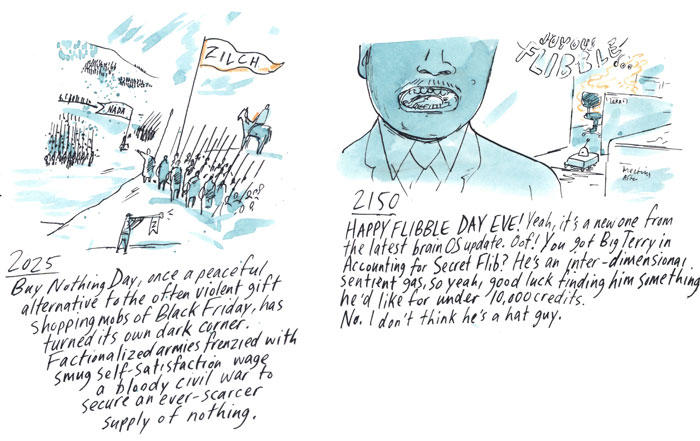 ZILCH
NADA
2025
Buy Nothing Day, once a peaceful
alternative to the often violent gift
shopping mobs of Black Friday, has
turned its own dark corner.
Factionalized armies frenzied with
smug self-satisfaction wage
a bloody civil war to
secure an ever-scarcer
supply of nothing.
JOYOUS
FLIBBLE...
2150
HAPPY FLIBBLE DAY EVE! Yeah, it's a new one from
the latest brain OS update. Oof! You got Big Terry in
Accounting for Secret Flib? He's an inter-dimensional
sentient gas, so yeah, good luck finding him something
he'd like for under 10,000 credits.
No. I don't think he's a hat guy.